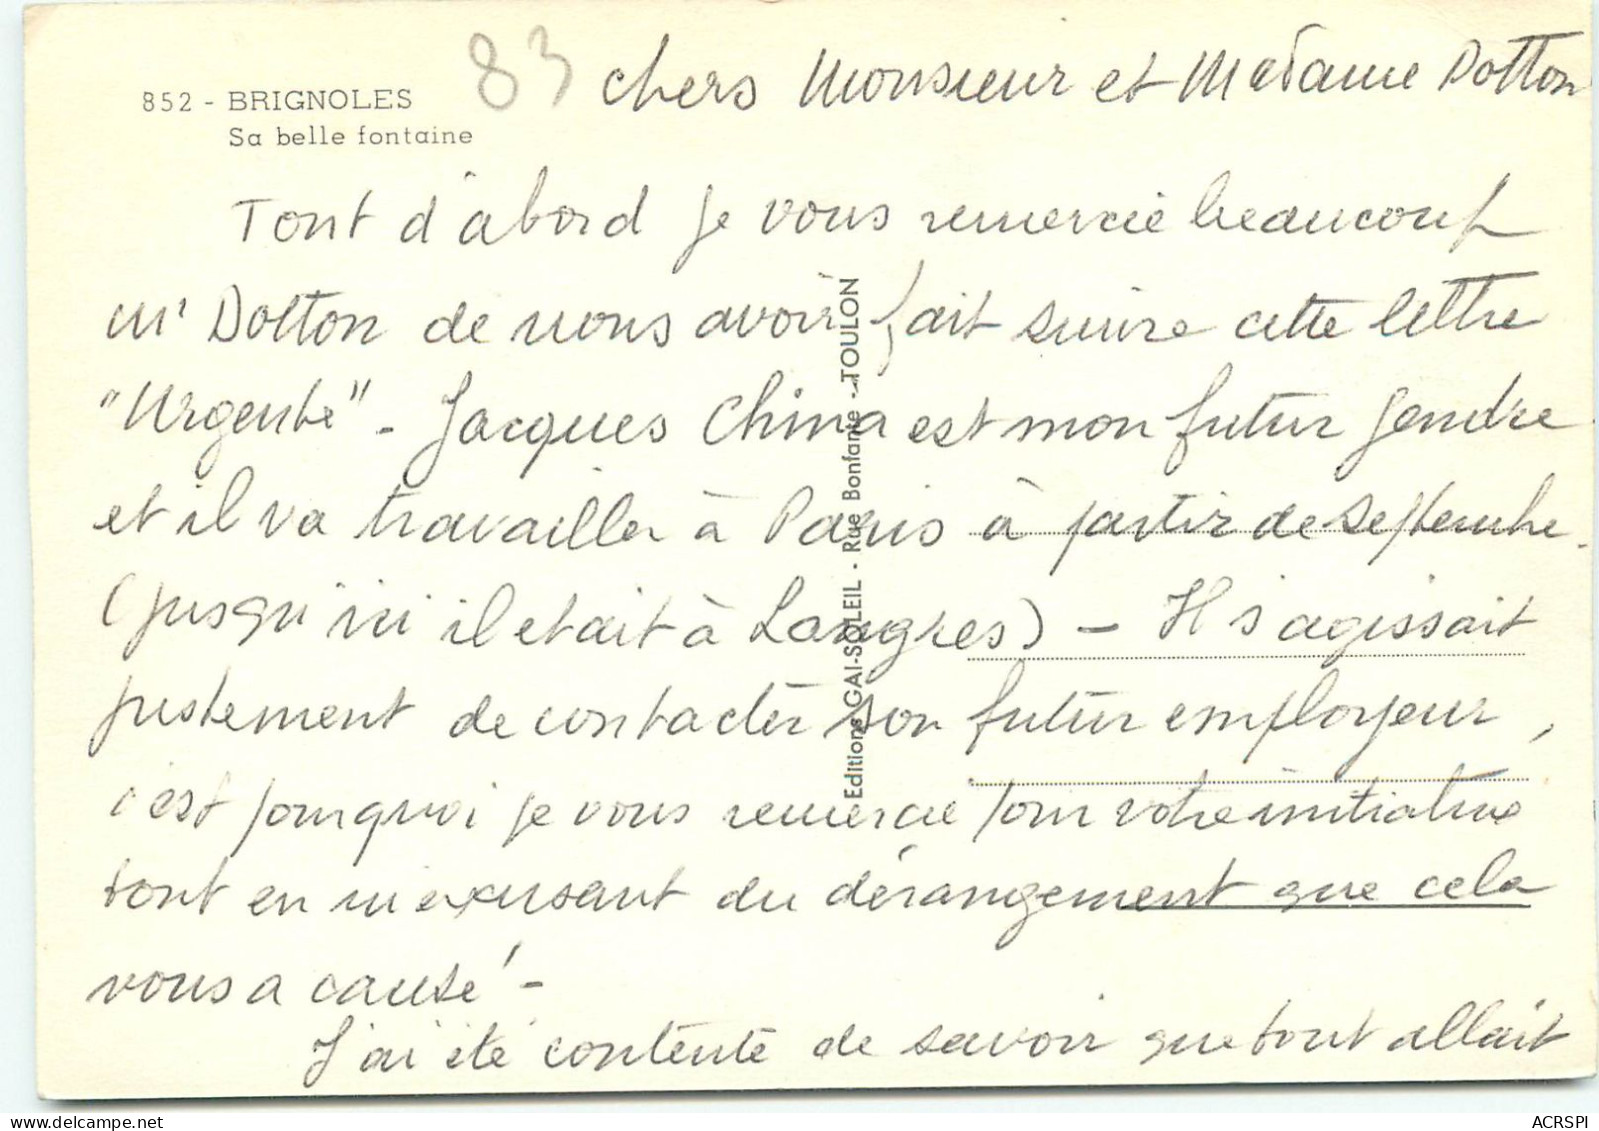 83 chers Monsieur et Madame Dotton
852 - BRIGNOLES
Sa belle fontaine
Tout d'abord je vous remercie beaucoup
Mr Dotton de nous avoir fait suivre cette lettre
"Urgente" - Jacques China est mon futur gendre
et il va travailler à Paris à partir de septembre.
(jusqu'ici il etait à Langres) - Il s'agissait
justement de contacter son futur employeur,
c'est pourquoi je vous remercie pour votre initiative
tout en m'excusant du dérangement que cela
vous a causé -
J'ai été contente de savoir que tout allait
Editions GAI-SOLEIL - Rue Bonfante - TOULON
ACRSPI